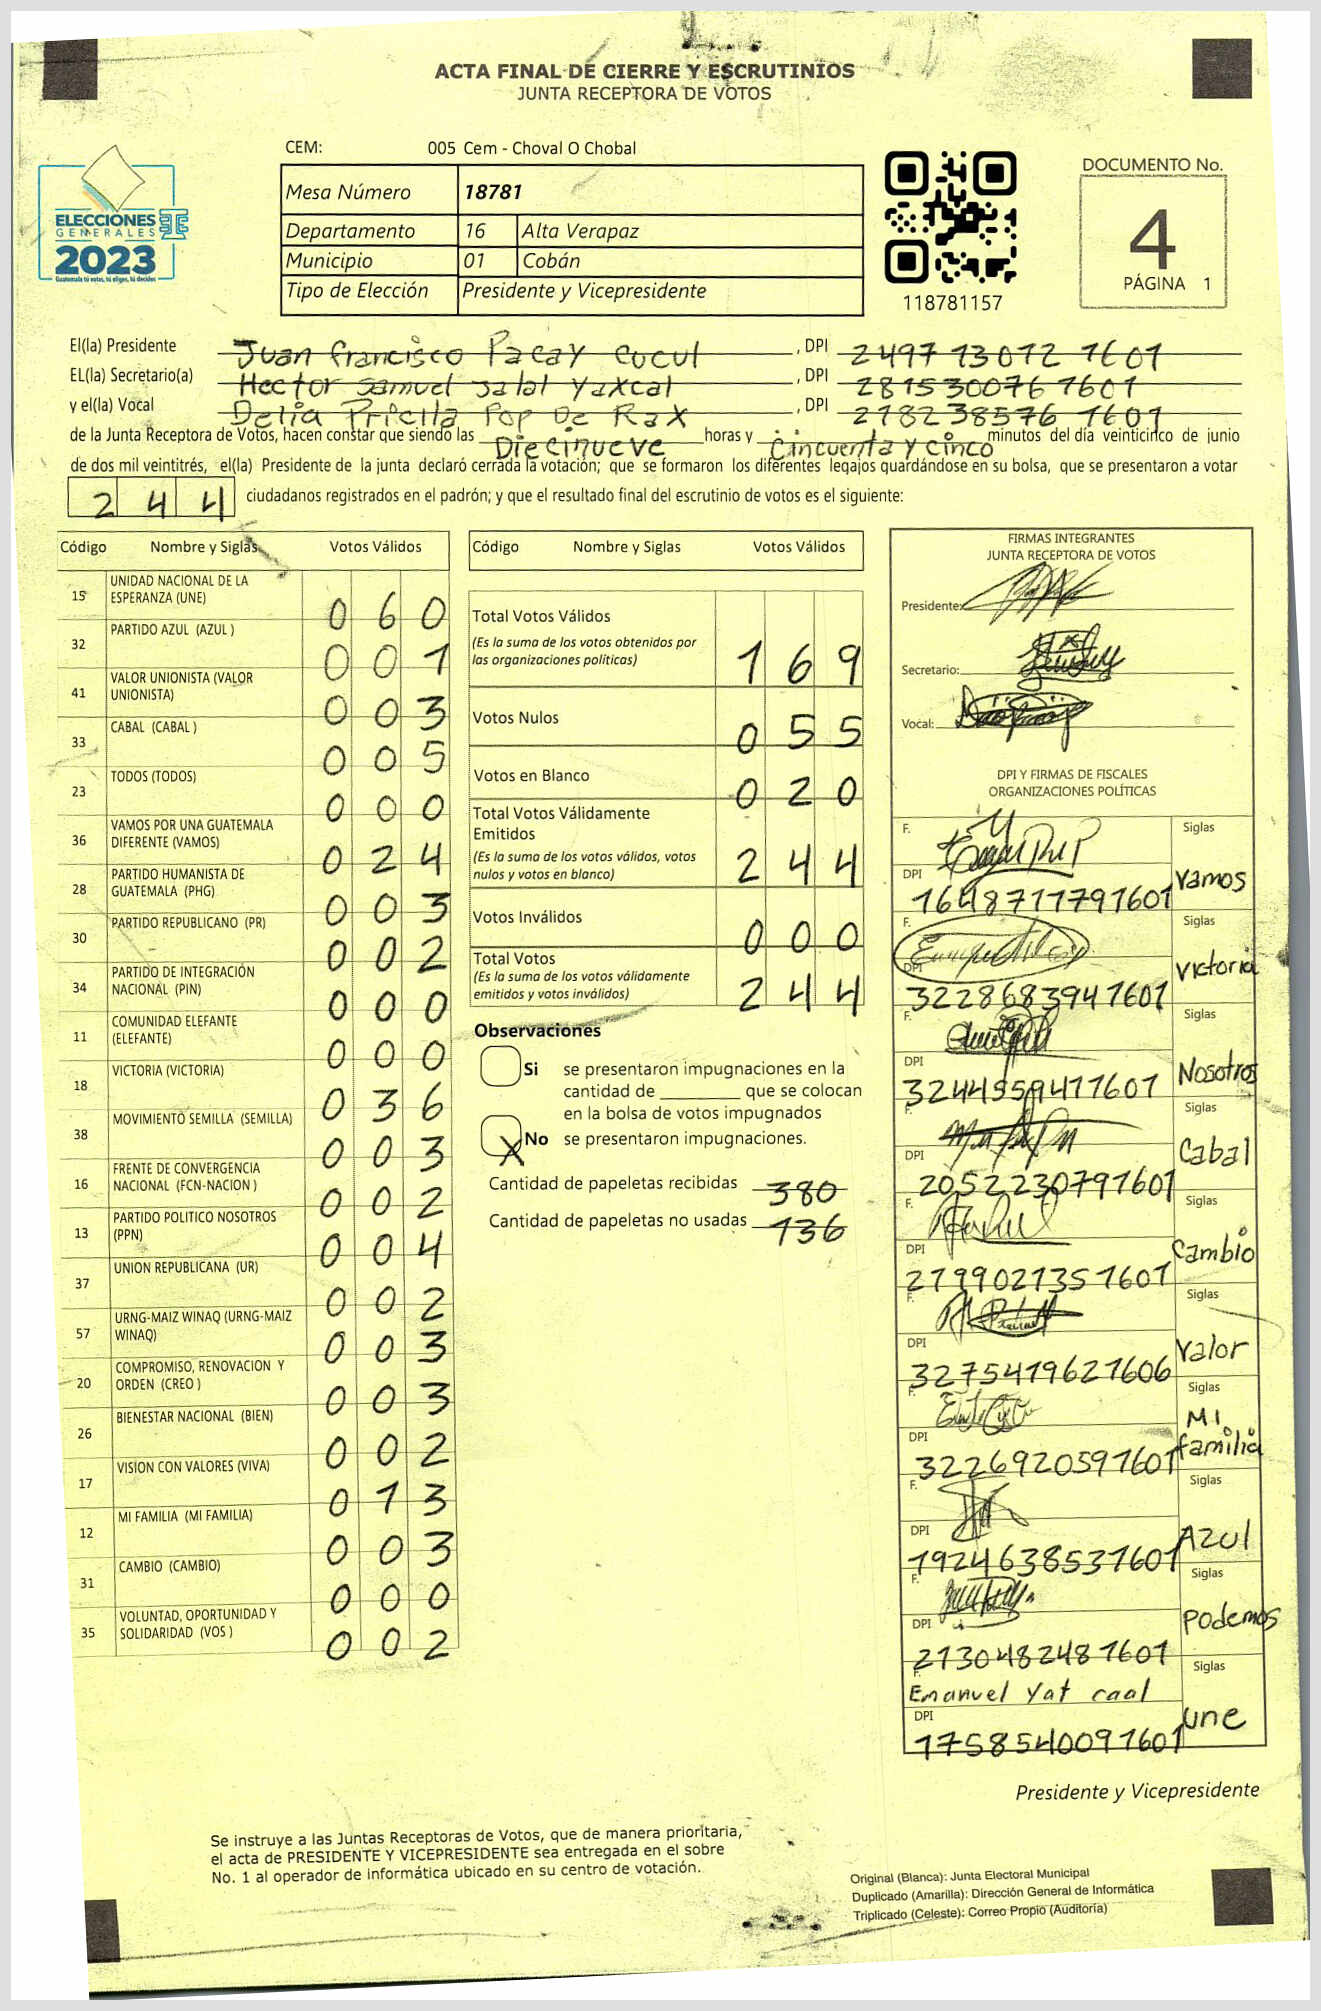 ACTA FINAL DE CIERRE Y ESCRUTINIOS
JUNTA RECEPTORA DE VOTOS
CEM: 005 Cem - Choval O Chobal
Mesa Número 18781
Departamento 16 Alta Verapaz
Municipio 01 Cobán
Tipo de Elección Presidente y Vicepresidente
ELECCIONES
GENERALES
2023
Guatemala tú votas, tú eliges, tú decides
118781157
DOCUMENTO No.
4
PÁGINA 1
El(la) Presidente Juan francisco Pacay cucul , DPI 2497 13012 1601
EL(la) Secretario(a) Hector samuel Jalal Yaxcal , DPI 281530076 1601
y el(la) Vocal Delia Pricila Pop De Rax , DPI 278238576 1601
de la Junta Receptora de Votos, hacen constar que siendo las Diecinueve horas y cincuenta y cinco minutos del día veinticinco de junio
de dos mil veintitrés, el(la) Presidente de la junta declaró cerrada la votación; que se formaron los diferentes legajos guardándose en su bolsa, que se presentaron a votar
244 ciudadanos registrados en el padrón; y que el resultado final del escrutinio de votos es el siguiente:
Código Nombre y Siglas Votos Válidos
15 UNIDAD NACIONAL DE LA ESPERANZA (UNE) 060
32 PARTIDO AZUL (AZUL ) 001
41 VALOR UNIONISTA (VALOR UNIONISTA) 003
33 CABAL (CABAL ) 005
23 TODOS (TODOS) 000
36 VAMOS POR UNA GUATEMALA DIFERENTE (VAMOS) 024
28 PARTIDO HUMANISTA DE GUATEMALA (PHG) 003
30 PARTIDO REPUBLICANO (PR) 002
34 PARTIDO DE INTEGRACIÓN NACIONAL (PIN) 000
11 COMUNIDAD ELEFANTE (ELEFANTE) 000
18 VICTORIA (VICTORIA) 036
38 MOVIMIENTO SEMILLA (SEMILLA) 003
16 FRENTE DE CONVERGENCIA NACIONAL (FCN-NACION ) 002
13 PARTIDO POLITICO NOSOTROS (PPN) 004
37 UNION REPUBLICANA (UR) 002
57 URNG-MAIZ WINAQ (URNG-MAIZ WINAQ) 003
20 COMPROMISO, RENOVACION Y ORDEN (CREO ) 003
26 BIENESTAR NACIONAL (BIEN) 002
17 VISION CON VALORES (VIVA) 013
12 MI FAMILIA (MI FAMILIA) 003
31 CAMBIO (CAMBIO) 000
35 VOLUNTAD, OPORTUNIDAD Y SOLIDARIDAD (VOS ) 002
Código Nombre y Siglas Votos Válidos
Total Votos Válidos
(Es la suma de los votos obtenidos por
las organizaciones políticas) 169
Votos Nulos 055
Votos en Blanco 020
Total Votos Válidamente
Emitidos
(Es la suma de los votos válidos, votos
nulos y votos en blanco) 244
Votos Inválidos 000
Total Votos
(Es la suma de los votos válidamente
emitidos y votos inválidos) 244
Observaciones
Si se presentaron impugnaciones en la
cantidad de ________ que se colocan
en la bolsa de votos impugnados
X No se presentaron impugnaciones.
Cantidad de papeletas recibidas 380
Cantidad de papeletas no usadas 136
FIRMAS INTEGRANTES
JUNTA RECEPTORA DE VOTOS
Presidente:
Secretario:
Vocal:
DPI Y FIRMAS DE FISCALES
ORGANIZACIONES POLÍTICAS
F. Siglas
DPI 1648717791601 Vamos
F. Siglas
DPI 3228683941601 Victoria
F. Siglas
DPI 3244559471601 Nosotros
F. Siglas
DPI 2052230791601 Cabal
F. Siglas
DPI 2799027351601 Cambio
F. Siglas
DPI 3275419621606 Valor
F. Siglas
DPI 3226920591601 MI familia
F. Siglas
DPI 1924638531601 AZUL
F. Siglas
DPI 2130482481601 Podemos
F. Emanuel Yat caal Siglas
DPI 1758540091601 une
Presidente y Vicepresidente
Se instruye a las Juntas Receptoras de Votos, que de manera prioritaria,
el acta de PRESIDENTE Y VICEPRESIDENTE sea entregada en el sobre
No. 1 al operador de informática ubicado en su centro de votación.
Original (Blanca): Junta Electoral Municipal
Duplicado (Amarilla): Dirección General de Informática
Triplicado (Celeste): Correo Propio (Auditoría)